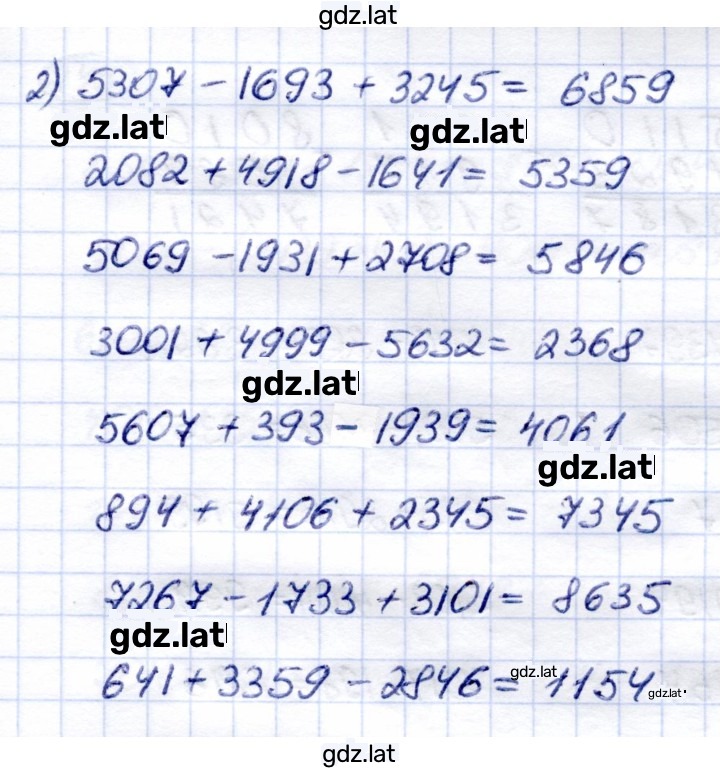 gdz.lat
2) 5307 - 1693 + 3245 = 6859
gdz.lat gdz.lat
2082 + 4918 - 1641 = 5359
5069 - 1931 + 2708 = 5846
3001 + 4999 - 5632 = 2368
gdz.lat
5607 + 393 - 1939 = 4061
gdz.lat
894 + 4106 + 2345 = 7345
7267 - 1733 + 3101 = 8635
gdz.lat
gdz.lat
641 + 3359 - 2846 = 1154.
gdz.lat
gdz.lat